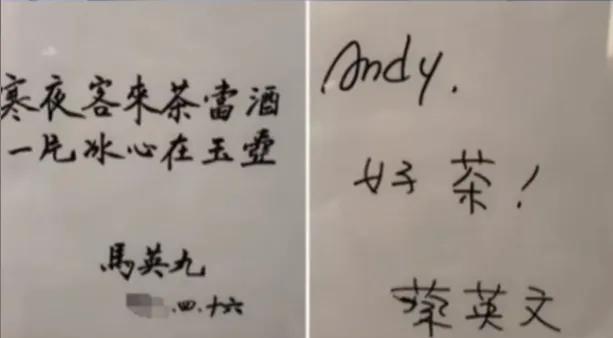 寒夜客來茶當酒
一片冰心在玉壺
馬英九
.四.十六
Andy.
好茶!
蔡英文